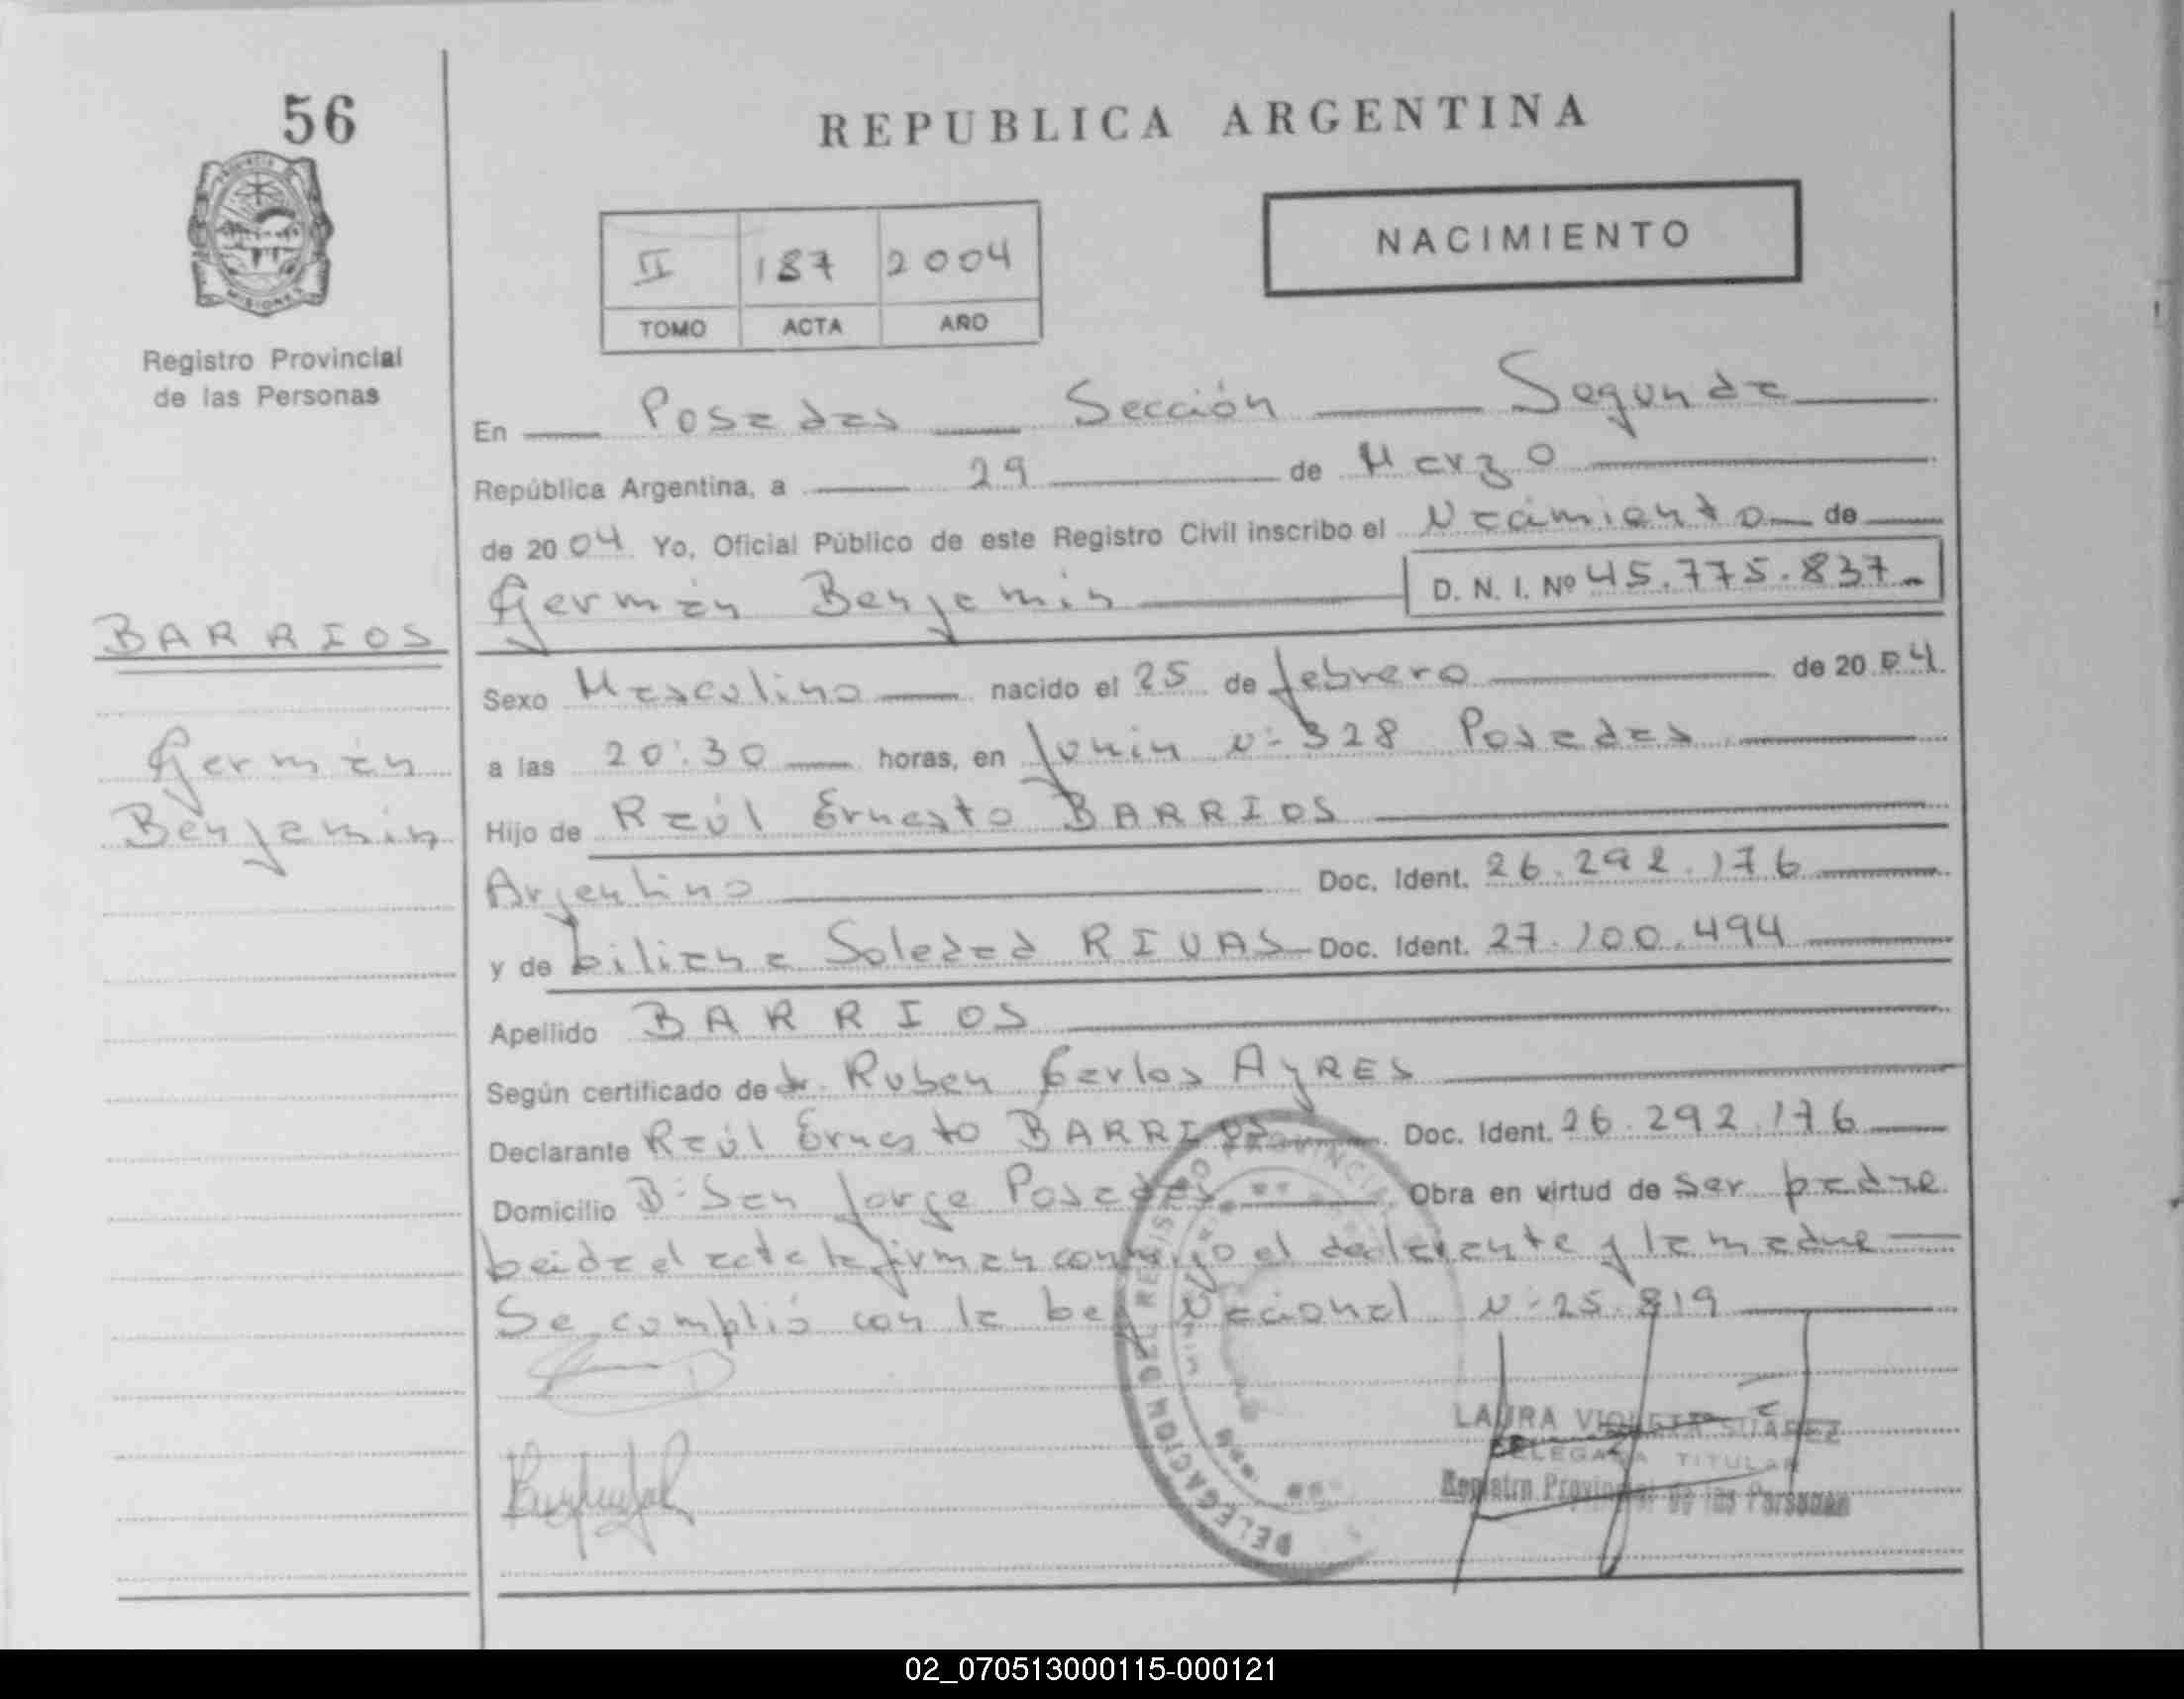 56
REPUBLICA ARGENTINA
PROVINCIA
MISIONES
Registro Provincial
de las Personas
II 187 2004
TOMO ACTA AÑO
NACIMIENTO
En Posadas Sección Segunda
República Argentina, a 29 de Marzo
de 2004 Yo, Oficial Público de este Registro Civil inscribo el Nacimiento de
Germán Benjamin D. N. I. Nº 45.775.837
BARRIOS
Germán
Benjamin
Sexo Masculino nacido el 25 de febrero de 2004
a las 20:30 horas, en Junin Nº 328 Posadas
Hijo de Raúl Ernesto BARRIOS
Argentino Doc. Ident. 26.292.176
y de Liliana Soledad RIVAS Doc. Ident. 27.100.494
Apellido BARRIOS
Según certificado de dr. Ruben Carlos AyRES
Declarante Raúl Ernesto BARRIOS Doc. Ident. 26.292.176
Domicilio Bº San Jorge Posadas Obra en virtud de ser padre
Leida el acta la firman conmigo el declarante y la madre
Se cumplió con la Ley Nacional Nº 25.819
DELEGACION DEL REGISTRO PROVINCIAL
LAURA VIOLETA SUAREZ
DELEGADA TITULAR
Registro Provincial de las Personas
02_070513000115-000121